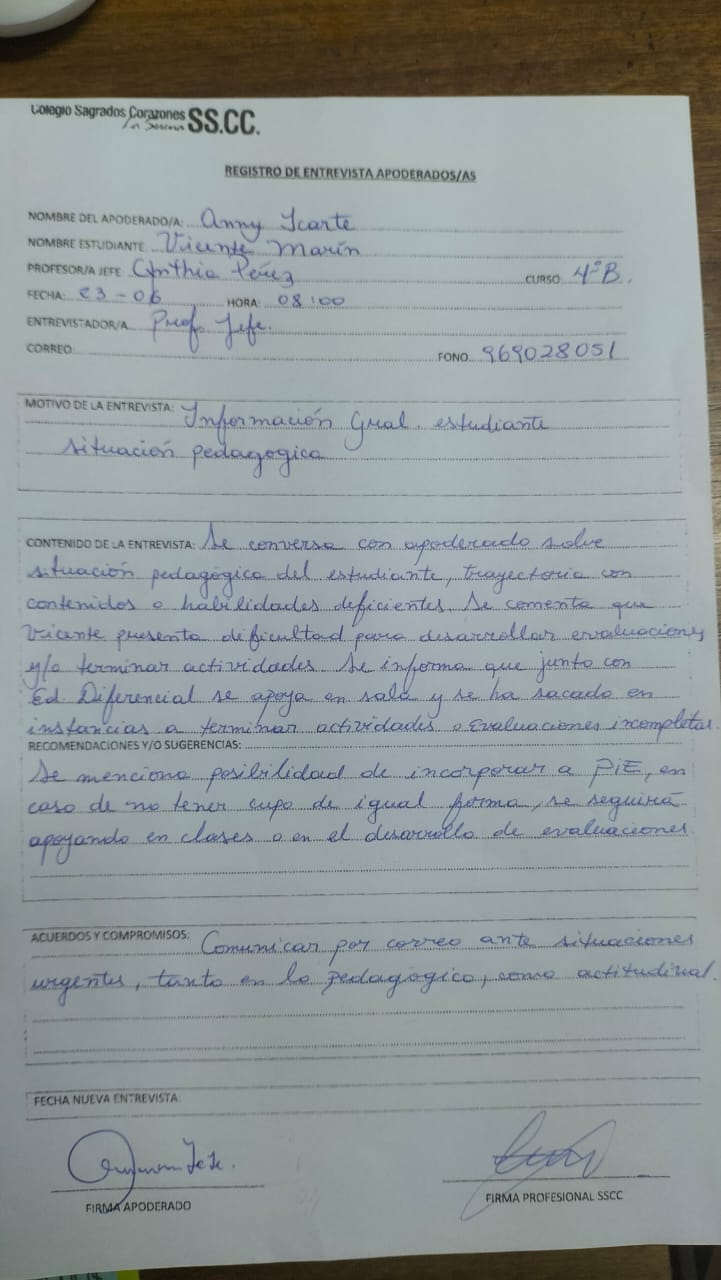 Colegio Sagrados Corazones
La Serena SS.CC.
REGISTRO DE ENTREVISTA APODERADOS/AS
NOMBRE DEL APODERADO/A: Anny Icarte
NOMBRE ESTUDIANTE Vicente Marín
PROFESOR/A JEFE Cynthia Pérez CURSO 4°B.
FECHA: 23-06 HORA: 08:00
ENTREVISTADOR/A Prof. Jefe.
CORREO FONO 969028051
MOTIVO DE LA ENTREVISTA: Información Gral. estudiante
situación pedagogica
CONTENIDO DE LA ENTREVISTA: Se conversa con apoderado sobre
situación pedagógica del estudiante, trayectoria con
contenidos o habilidades deficientes. Se comenta que
Vicente presenta dificultad para desarrollar evaluaciones
y/o terminar actividades. Se informa que junto con
Ed. Diferencial se apoya en sala y se ha sacado en
instancias a terminar actividades o evaluaciones incompletas.
RECOMENDACIONES Y/O SUGERENCIAS:
Se menciona posibilidad de incorporar a PIE, en
caso de no tener cupo de igual forma, se seguirá
apoyando en clases o en el desarrollo de evaluaciones.
ACUERDOS Y COMPROMISOS: Comunicar por correo ante situaciones
urgentes, tanto en lo pedagógico, como actitudinal.
FECHA NUEVA ENTREVISTA
FIRMA APODERADO
FIRMA PROFESIONAL SSCC